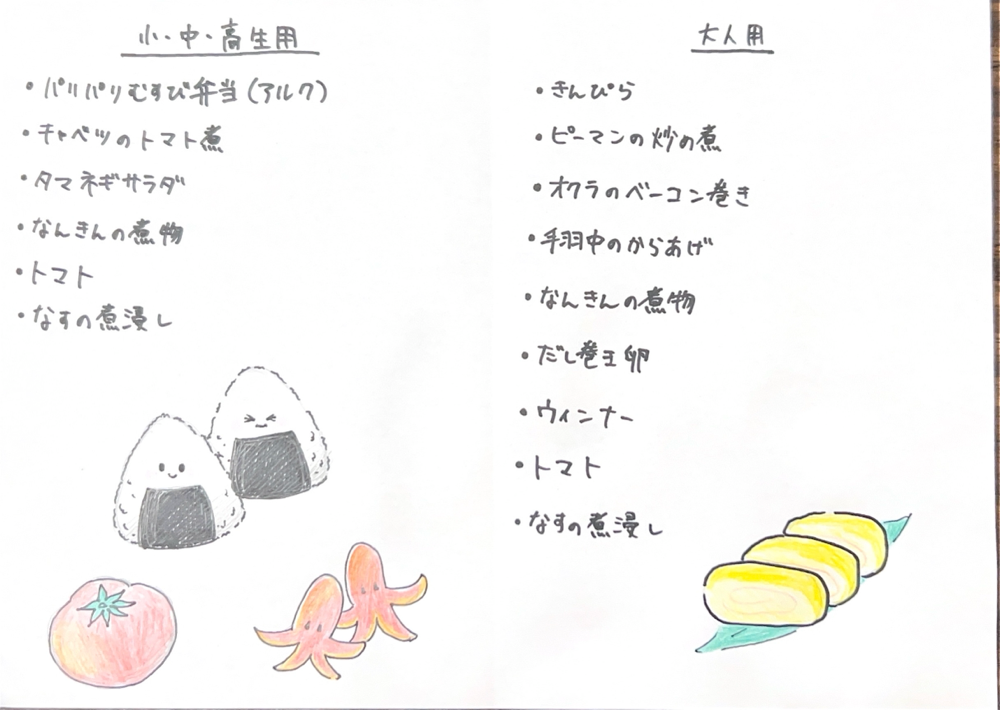 小・中・高生用
・パリパリむすび弁当(アルク)
・キャベツのトマト煮
・タマネギサラダ
・なんきんの煮物
・トマト
・なすの煮浸し
大人用
・きんぴら
・ピーマンの炒め煮
・オクラのベーコン巻き
・手羽中のからあげ
・なんきんの煮物
・だし巻玉卵
・ウィンナー
・トマト
・なすの煮浸し